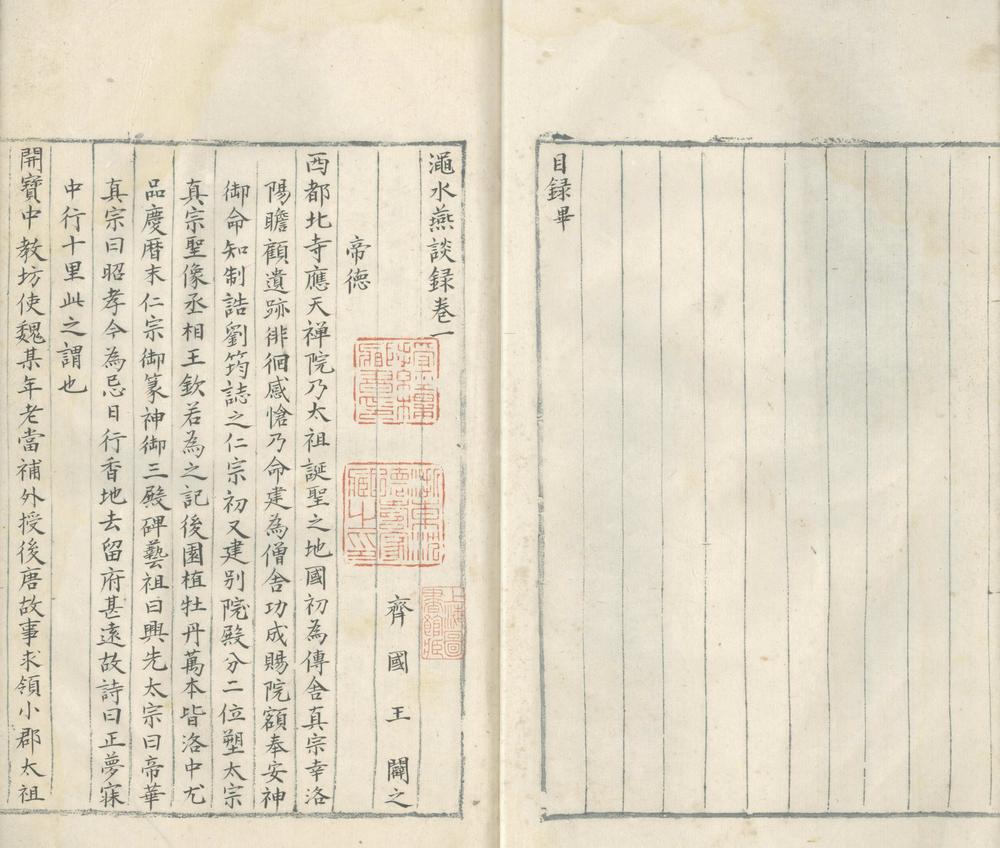 目録畢
澠水燕談録卷一
齊國王闢之
帝德
西都北寺應天禅院乃太祖誕聖之地國初為傳舍真宗幸洛
陽瞻顧遺跡徘徊感愴乃命建為僧舍功成賜院額奉安神
御命知制誥劉筠誌之仁宗初又建别院殿分二位塑太宗
真宗聖像丞相王欽若為之記後園植牡丹萬本皆洛中尤
品慶暦末仁宗御篆神御三殿碑藝祖曰興先太宗曰帝華
真宗曰昭孝今為忌日行香地去留府甚遠故詩曰正夢寐
中行十里此之謂也
開寶中教坊使魏某年老當補外授後唐故事求領小郡太祖
上海圖
書館藏